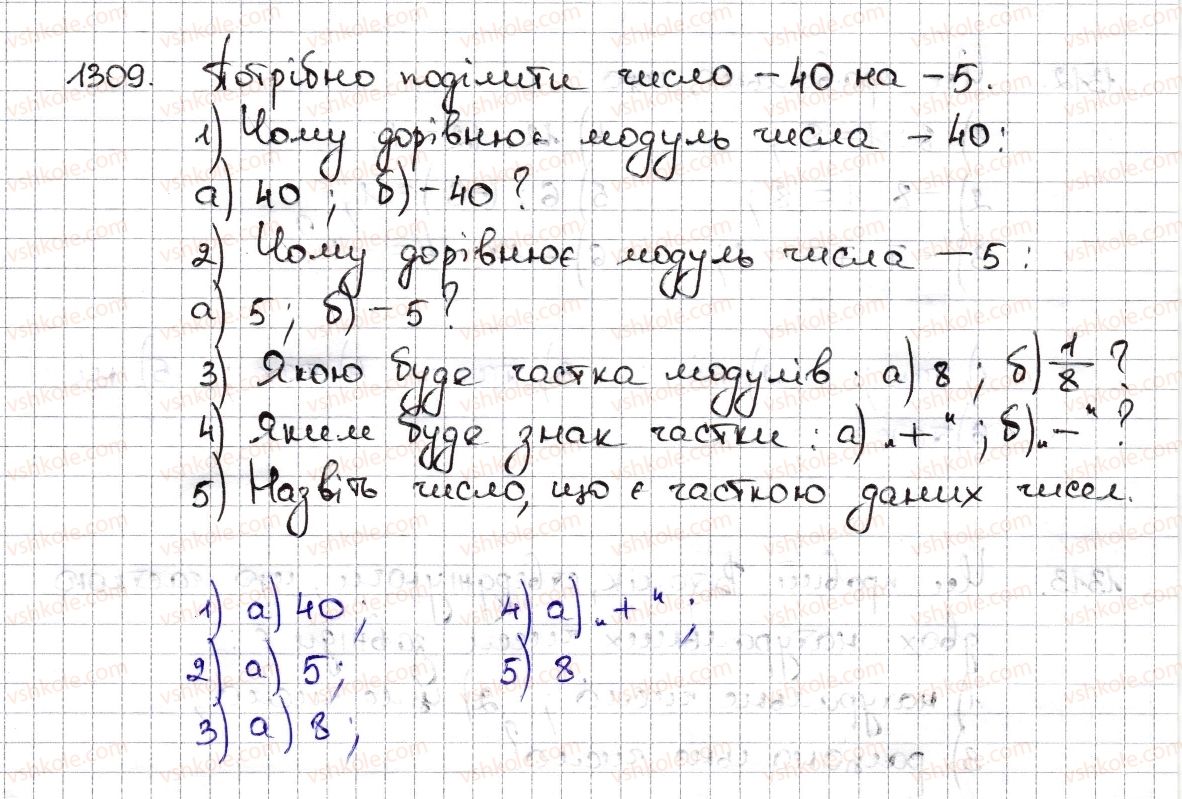 1309. Потрібно поділити число -40 на -5.
1) Чому дорівнює модуль числа -40:
а) 40; б) -40?
2) Чому дорівнює модуль числа -5:
а) 5; б) -5?
3) Якою буде частка модулів: а) 8; б) 1/8?
4) Яким буде знак частки: а) „+“; б) „-“?
5) Назвіть число, що є часткою даних чисел.
1) а) 40; 4) а) „+“;
2) а) 5; 5) 8.
3) а) 8;